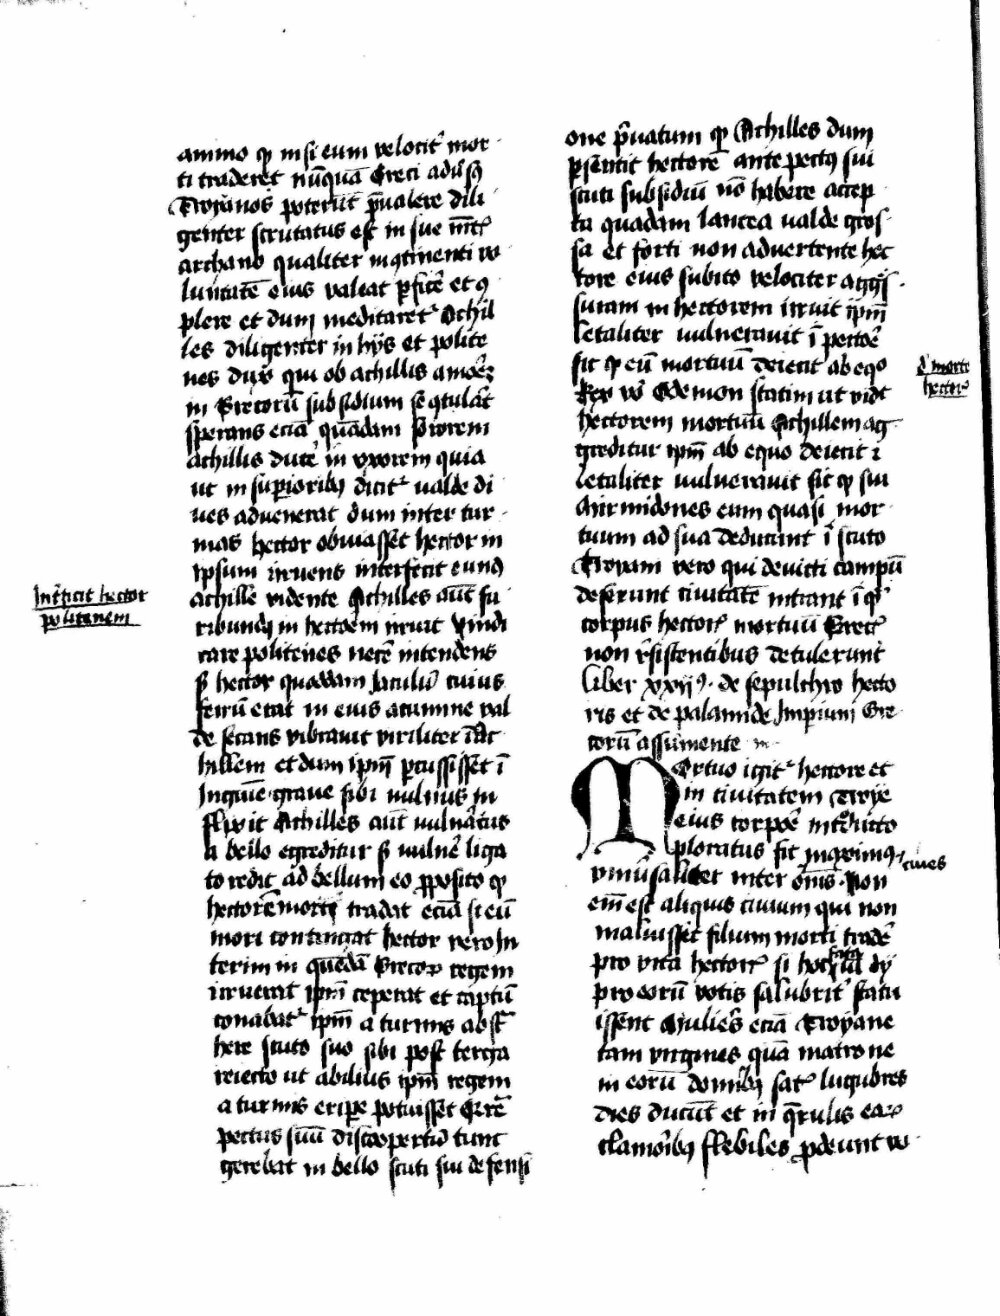 animo qꝫ nisi eum velocit᷑ mor
ti traderet nūquā Greci adūsꝰ
Troyanos poterūt p̄ualere dili
genter scrutatus est in sue mēt᷑
archano qualiter inꝯtinenti vo
luntatē eius valeat ꝑficẽ et ꝯ
plere et dum meditaret᷑ Achil
les diligenter in hijs et polite
nes dux qui ob achillis amorē
in Grecorū subsidium se ꝯtulāt
sperans eciā quādam sororem
achillis ducẽ in vxorem quia
ut in suꝑioribꝫ dicit᷑ valde di
ues aduenerat dum inter tur
mas hector obuiasset hector in
ipsum irruens interfecit eundē
achille vidente Achilles aūt fu
ribundꝫ in hectorem irruit vindi
care politenes necē intendens
sꝫ hector quoddam Jaculū cuius
ferrū erat in eius acumine val
de secans vibrauit viriliter ī Ac
hillem et dum ipm̄ ꝑcussisset ī
Inguīe graue sibi vulnus in
flixit Achilles aūt vulnātus
a bello egreditur sꝫ vulnẽ liga
to redit ad bellum eo ꝓposito qꝫ
hectorē morti tradat eciā si eū
mori contingat hector vero In
terim in quēdā Grecoꝝ regem
irruerat ipm̄ ceperat et captū
conabat᷑ ipm̄ a turmis abst᷑
here scuto suo sibi post terga
reiecto ut abilius ipm̄ regem
a turmis eriꝑe potuisset Qrē
pectus suū discoopertū tunc
gerebat in bello scuti sui defensi
Inťficit hector
politenem
one p̄uatum qꝫ Achilles dum
ꝑsensit hectorē ante pectꝰ sui
scuti subsidiū nō habere accep
ta quadam lancea valde gros
sa et forti non aduertente hec
tore eius subito velociter aggr̄s
suram in hectorem irruit ipm̄
letaliter vulnerauit ī pectoẽ
sit qꝫ eū mortuū deiecit ab eqo
Rex vō Edemon statim ut vidt
hectorem mortuū Achillem ag
greditur ipm̄ ab equo deiecit ⁊
letaliter vulnerauit sic qꝫ sui
Mirmidones eum quasi mor
tuum ad sua deducunt ī scuto
Troyani vero qui deuicti campū
deserunt ciuitatē intrant ī qꝫ
corpus hector᷑ mortuū Grec᷑
non r̄sistentibus detulerunt
Liber xxijꝰ · de sepulchro hecto
ris et de palamide Imperium Gre
corū assumente
Mortuo igit᷑ hectore et
in ciuitatem Troye
eius corpoẽ introducto
ploratus fit maximꝰ
vniūsaliter inter om̄s ciues · Non
em̄ est aliquis ciuium qui non
maluisset filium morti tradẽ
pro vita hector᷑ si hoc fata ul dij
pro eorū votis salubrit᷑ statu
issent Mulieř eciā Troyane
tam virgines quā matrone
in eorū domibꝫ sat᷑ lugubres
dies ducūt et in q̄rulis eaꝝ
clamoribꝫ flebiles ꝓdeunt vo
d᷑ morte
hector᷑